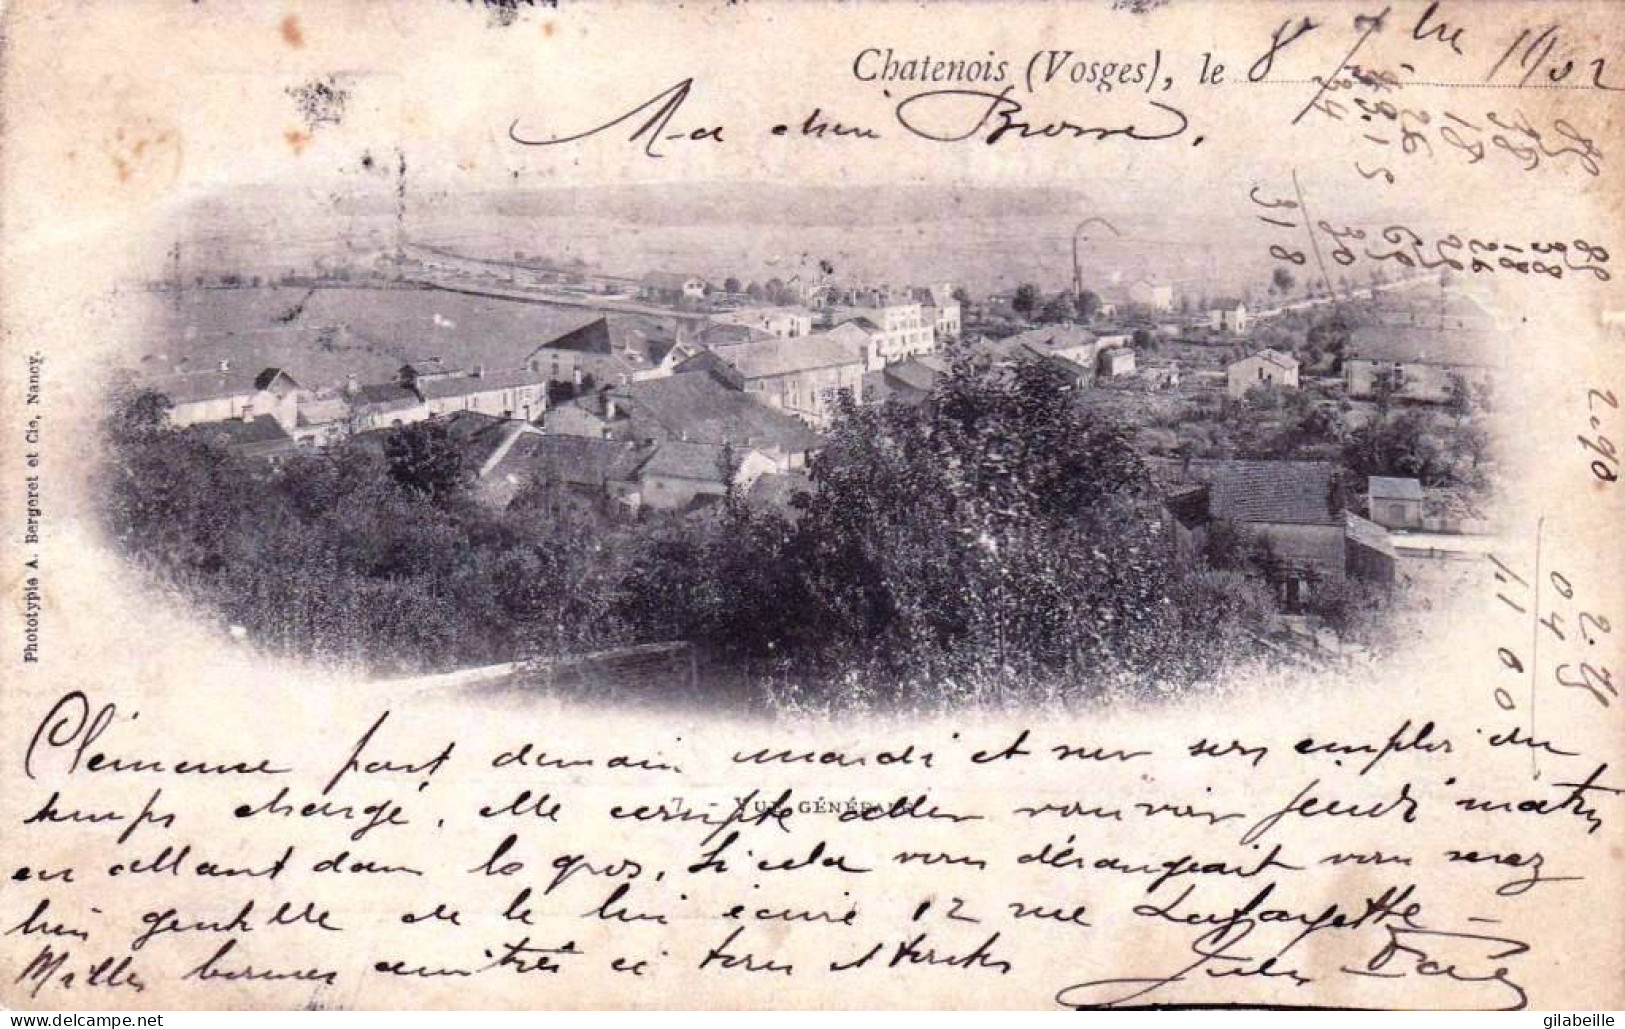 Chatenois (Vosges), le 8 7bre 1902
Ma chère Brosse,
85
38
18
26
318
30
2.90
2.75
04
11 00
Phototypie A. Bergeret et Cie, Nancy.
7. - VUE GÉNÉRALE
Clémence part demain mardi et vu son emploi du
temps chargé, elle compte aller vous voir jeudi matin
en allant dans le gros. Si cela vous dérangeait vous serez
bien gentille de le lui écrire 12 rue Lafayette -
Milles bonnes amitiés à tous et toutes
Jules
gilabeille